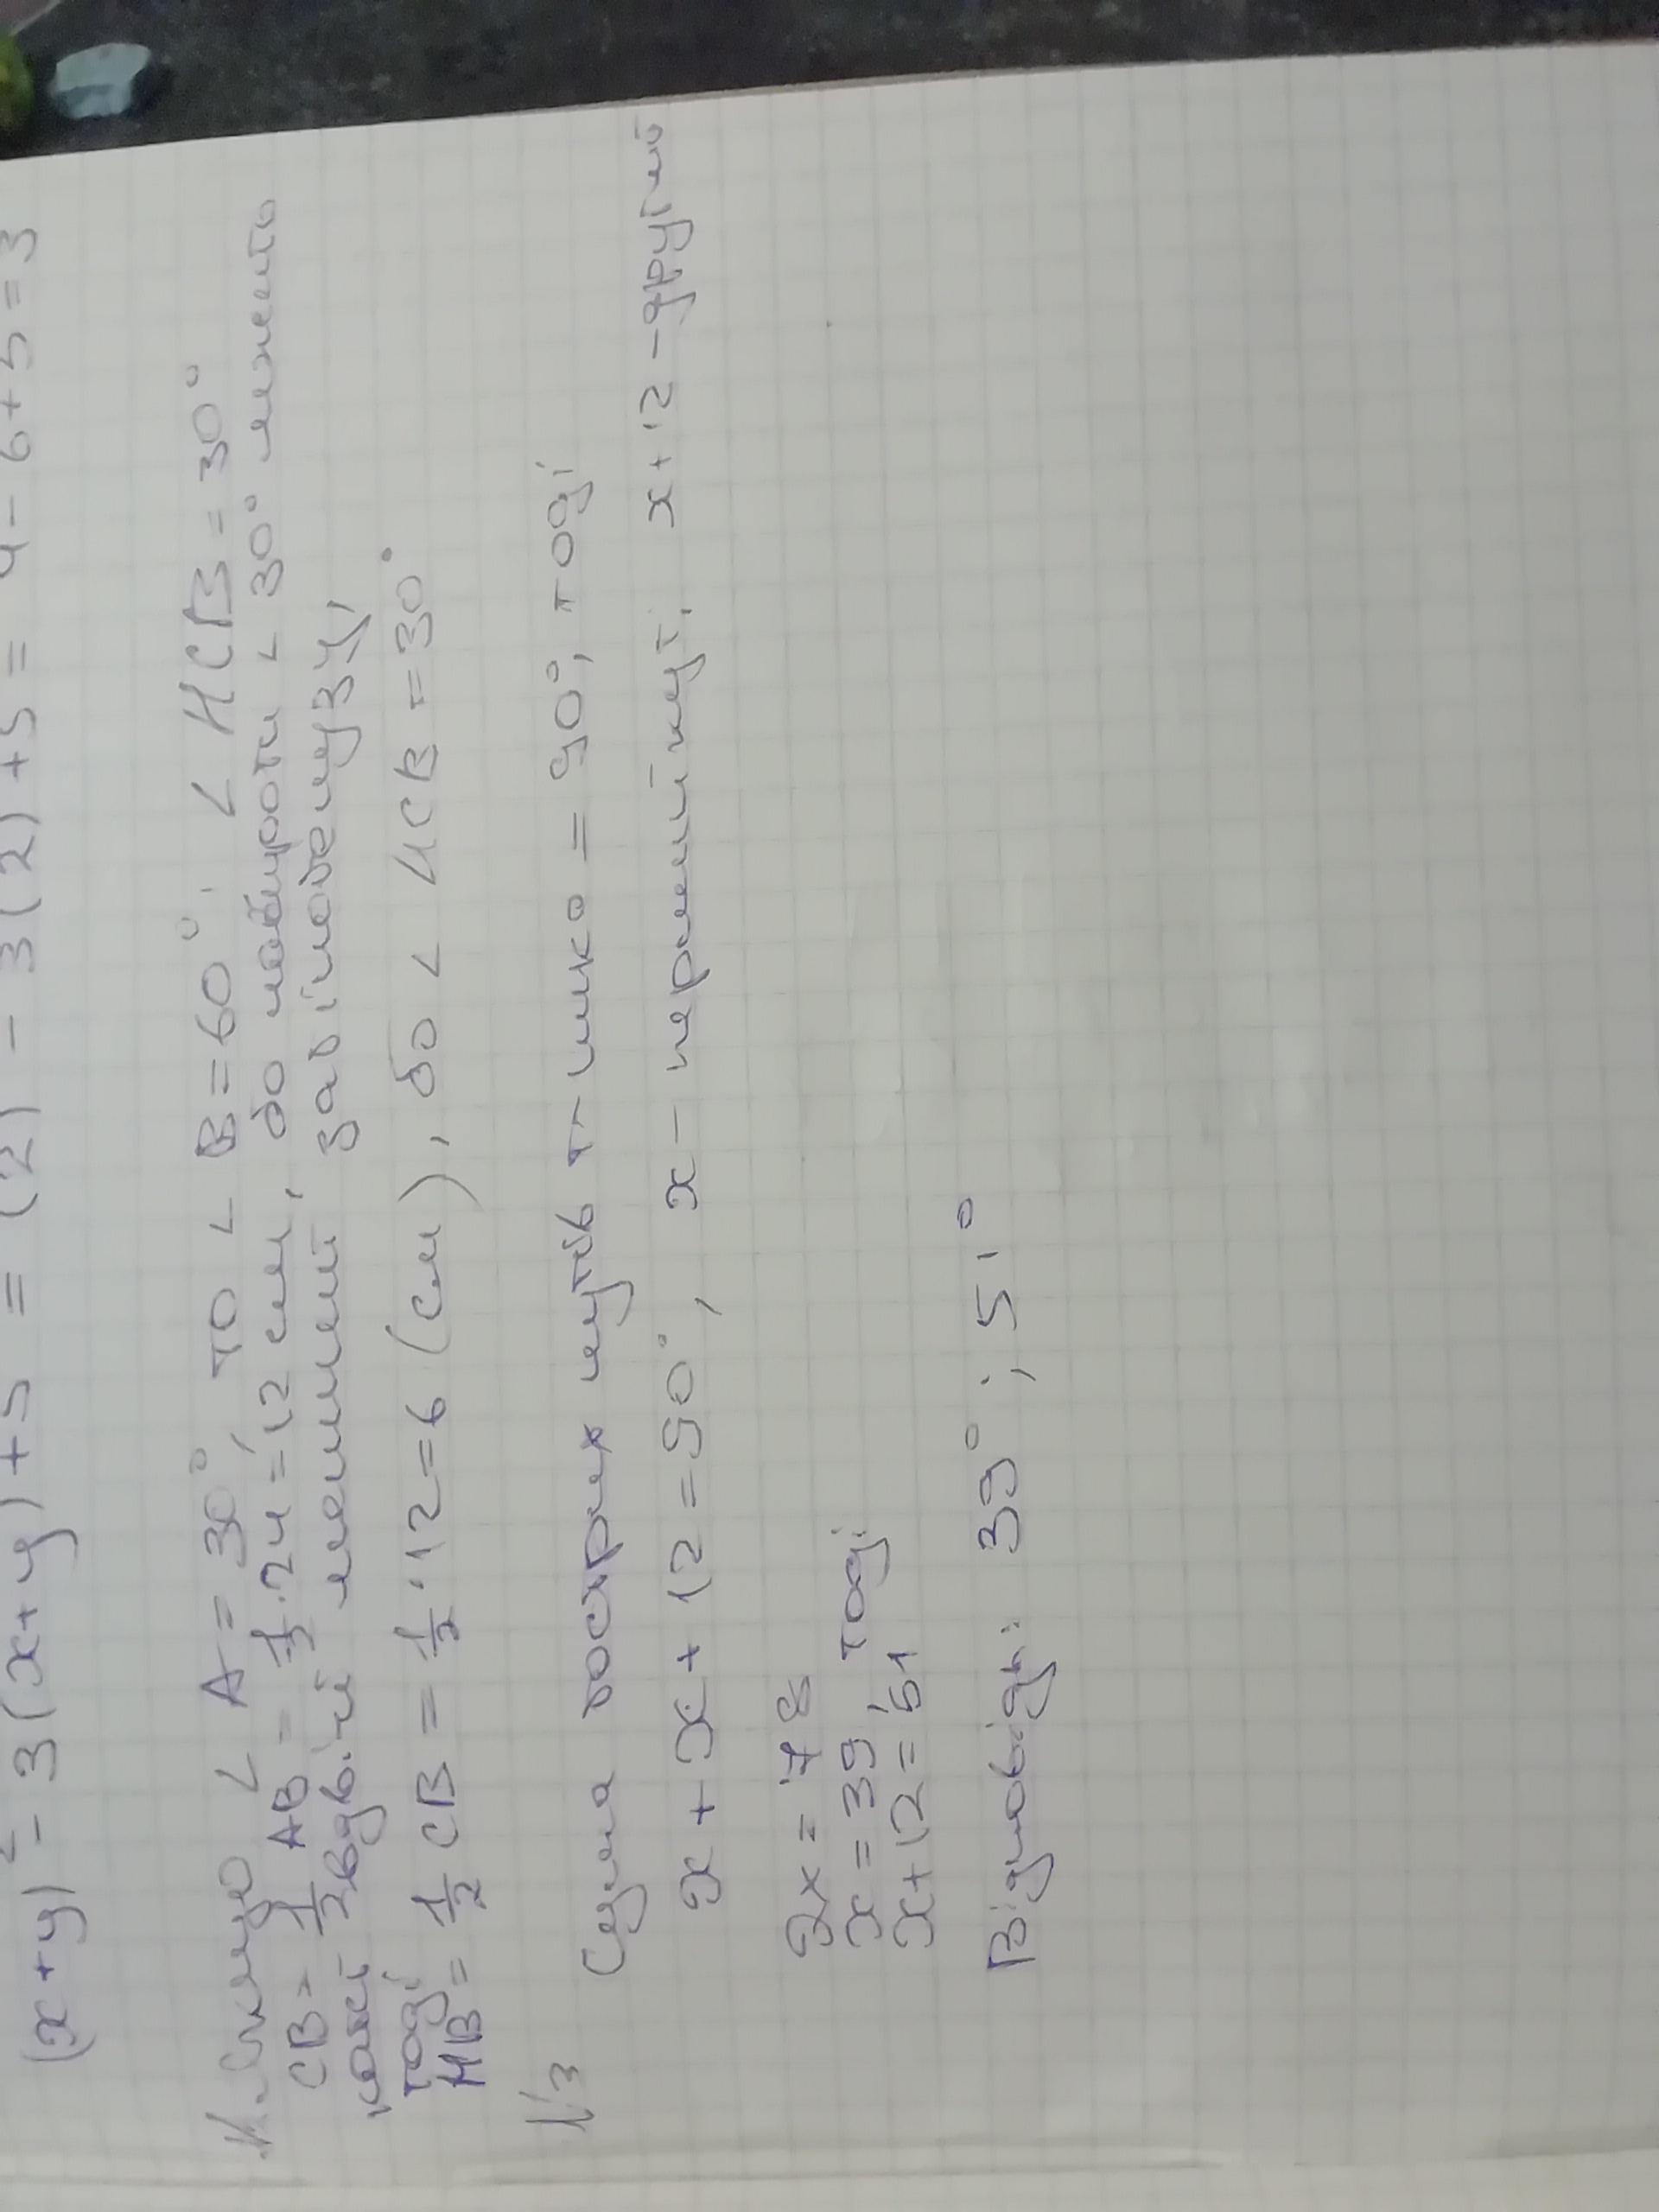 (x+y)² - 3(x+y)+5 = (2) - 3(2)+5 = 4-6+5=3
Якщо ∠ A = 30°, то ∠ B=60°. ∠ HCB=30°
CB= 1/2 AB = 1/2 · 24 = 12 см, бо навпроти ∠ 30° лежить
катет вдвічі менший за гіпотенузу,
тоді
HB = 1/2 CB = 1/2 · 12=6 (см), бо ∠ HCB =30°
N3
Сума гострих кутів т-ика = 90°, тоді
x+x+12=90°, x - перший кут, x+12 - другий
2x = 78
x = 39, тоді
x+12=51
Відповідь: 39°; 51°